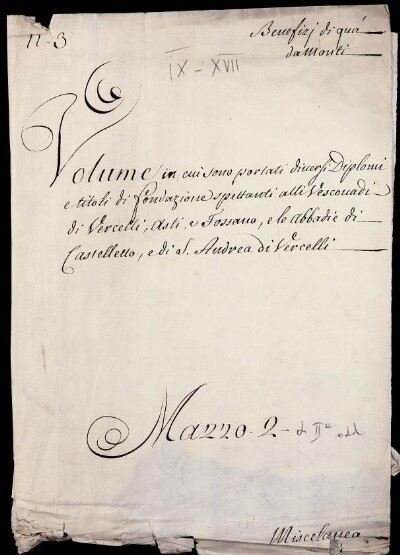 n. 3
Benefizj di quà
da Monti
IX - XVII
Volume in cui sono portati diversi Diplomi
e titoli di fondazione spettanti alli Vescovadi
di Vercelli, Asti, e Fossano, e le abbadie di
Castelletto, e di S. Andrea di Vercelli
Mazzo 2 di IIa add
Miscelanea